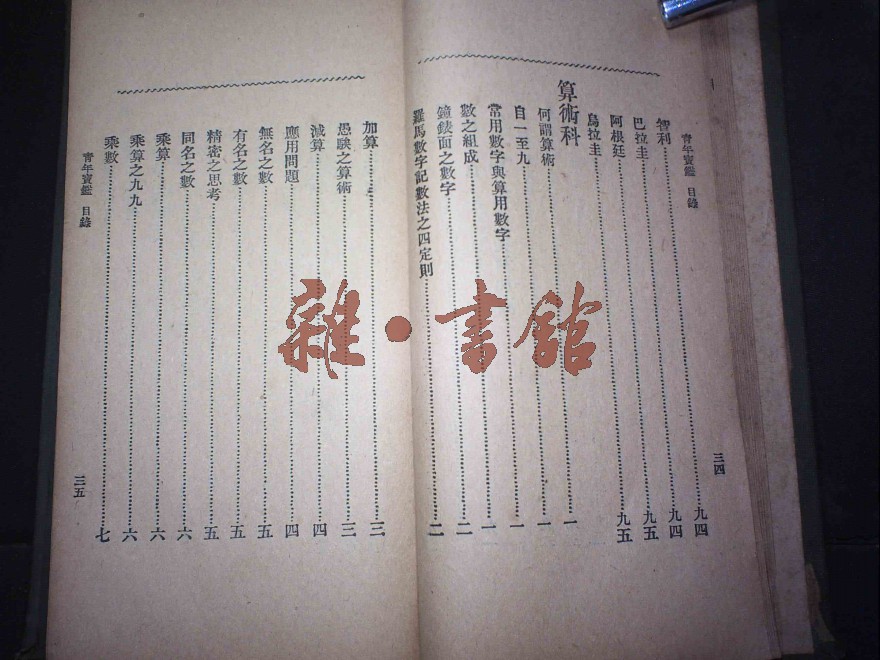 青年寳鑑 目錄 三四
智利……九四
巴拉圭……九四
阿根廷……九五
烏拉圭……九五
算術科
何謂算術……一
自一至九……一
常用數字與算用數字……一
數之組成……一
鐘錶面之數字……二
羅馬數字記數法之四定則……二
加算……三
愚騃之算術……三
減算……四
應用問題……四
無名之數……五
有名之數……五
精密之思考……五
同名之數……六
乘算……六
乘算之九九……六
乘數……七
青年寳鑑 目錄 三五
雜·書館